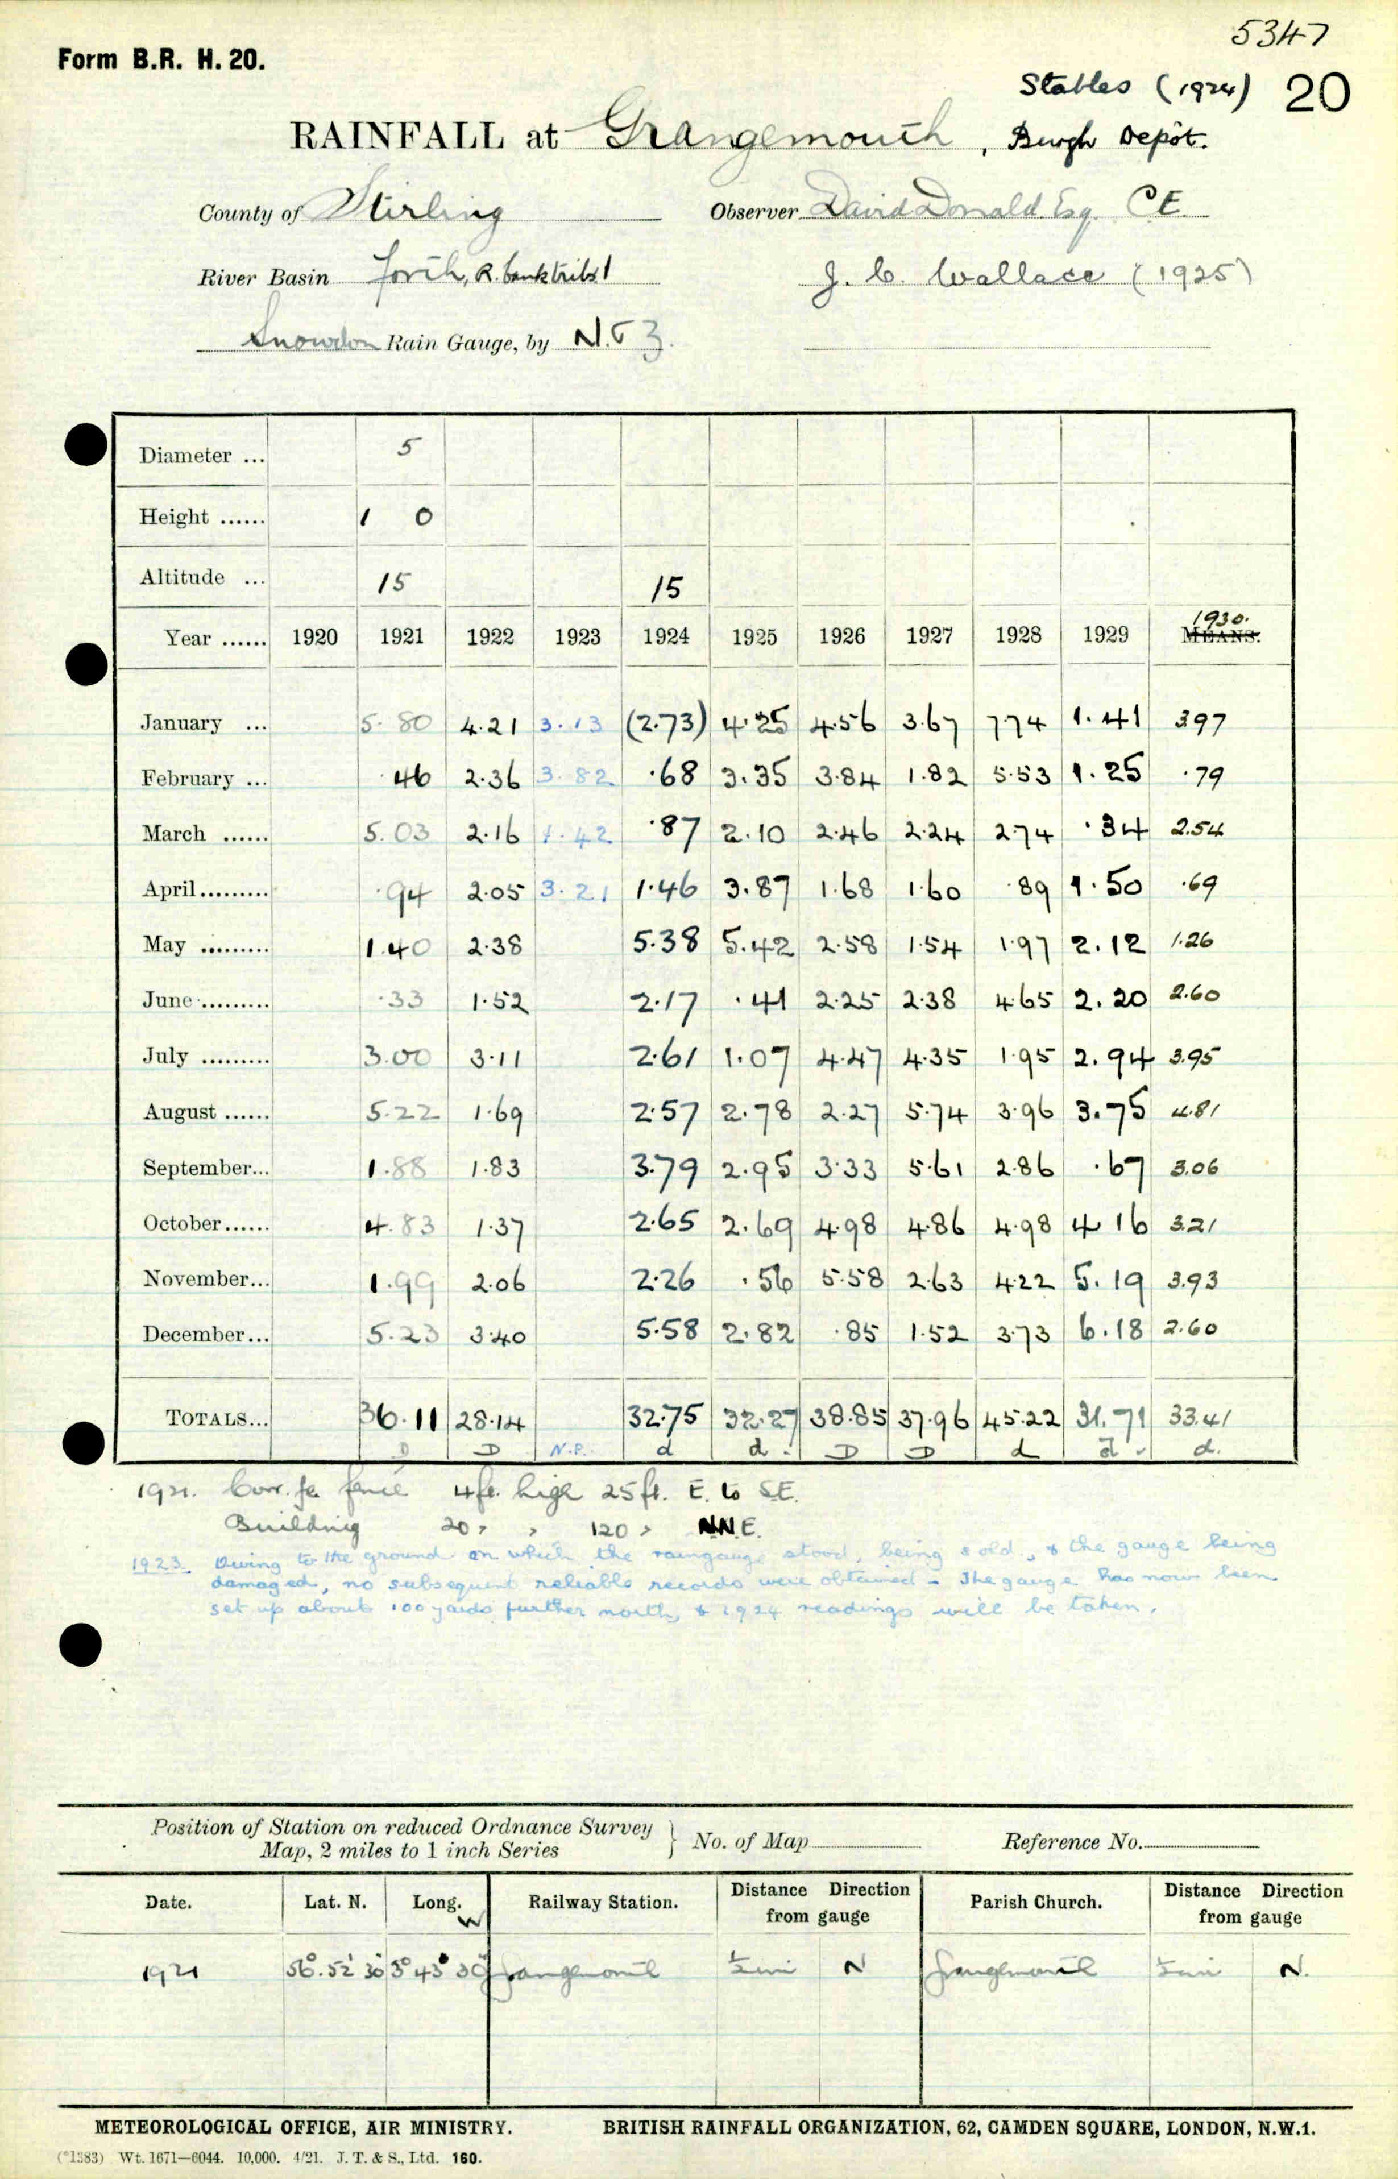 5347
Form B.R. H. 20.
Stables (1924) 20
RAINFALL at Grangemouth, Burgh Depôt.
County of Stirling Observer David Donald Esq. CE
River Basin Forth, R. bank tribs 1 J. C. Wallace (1925)
Snowdon Rain Gauge, by N. & Z.
Diameter ... 5
Height ...... 1 0
Altitude ... 15 15
Year ...... 1920 1921 1922 1923 1924 1925 1926 1927 1928 1929 1930. MEANS.
January ... 5.80 4.21 3.13 (2.73) 4.25 4.56 3.67 7.74 1.41 3.97
February ... .46 2.36 3.82 .68 3.35 3.84 1.82 5.53 1.25 .79
March ...... 5.03 2.16 1.42 .87 2.10 2.46 2.24 2.74 .34 2.54
April......... .94 2.05 3.21 1.46 3.87 1.68 1.60 .89 1.50 .69
May ......... 1.40 2.38 5.38 5.42 2.58 1.54 1.97 2.12 1.26
June ......... .33 1.52 2.17 .41 2.25 2.38 4.65 2.20 2.60
July ......... 3.00 3.11 2.61 1.07 4.47 4.35 1.95 2.94 3.95
August ...... 5.22 1.69 2.57 2.78 2.27 5.74 3.96 3.75 4.81
September... 1.88 1.83 3.79 2.95 3.33 5.61 2.86 .67 3.06
October...... 4.83 1.37 2.65 2.69 4.98 4.86 4.98 4.16 3.21
November... 1.99 2.06 2.26 .56 5.58 2.63 4.22 5.19 3.93
December... 5.23 3.40 5.58 2.82 .85 1.52 3.73 6.18 2.60
TOTALS... 36.11 28.14 32.75 32.27 38.85 37.96 45.22 31.71 33.41
D D N.P. d d. D D d d. d.
1921. Corr. fe fence 4ft. high 25ft. E. to S.E.
Building 20 " " 120 " NNE.
1923. Owing to the ground on which the raingauge stood, being sold, & the gauge being
damaged, no subsequent reliable records were obtained - The gauge has now been
set up about 100 yards further north, & 1924 readings will be taken.
Position of Station on reduced Ordnance Survey Map, 2 miles to 1 inch Series } No. of Map Reference No.
Date. Lat. N. Long. W Railway Station. Distance Direction from gauge Parish Church. Distance Direction from gauge
1921 56° 52' 30" 3° 43' 30" Grangemouth ½ mi N Grangemouth ½ mi N.
METEOROLOGICAL OFFICE, AIR MINISTRY. BRITISH RAINFALL ORGANIZATION, 62, CAMDEN SQUARE, LONDON, N.W.1.
(*1383) Wt. 1671—6044. 10,000. 4/21. J. T. & S., Ltd. 160.